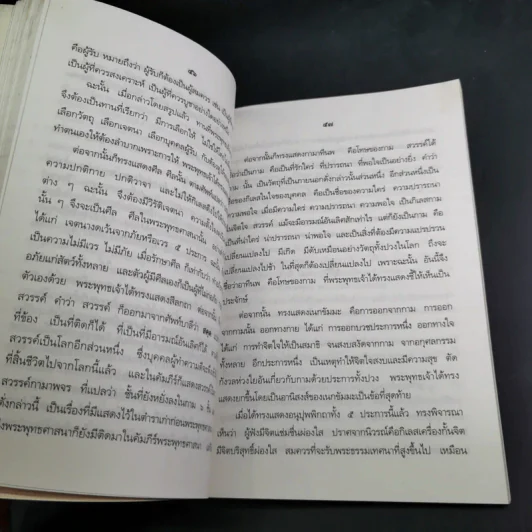 ๕๖
คือผู้รับ หมายถึงว่า ผู้รับก็ต้องเป็นผู้สมควร เช่น เป็นผู้
เป็นผู้ที่ควรสงเคราะห์ เป็นผู้ที่ควรบูชาอย่างใดอย่างหนึ่ง
ฉะนั้น เมื่อกล่าวโดยสรุปแล้ว ทานที่พระพุทธ
จึงต้องเป็นทานที่เรียกว่า มีการเลือกให้ ไม่ใช่ให้
เลือกวัตถุ เลือกเจตนา เลือกบุคคลผู้รับ
ทำตนเองให้ต้องลำบากเพราะการให้
ต่อจากนั้นก็ทรงแสดงศีล ศีลนั้น ตามศัพท์
ความปกติกาย ปกติวาจา และไม่ให้เกิด
ต่าง ๆ ฉะนั้น จึงต้องมีวิรัติเจตนา ความตั้งใจ
นั้น ๆ จึงจะเป็นศีล ศีลในพระพุทธศาสนานั้น
ได้แก่ เจตนางดเว้นจากภัยหรือเวร ๕ ประการ
เป็นความไม่มีเวร ไม่มีภัย เมื่อรักษาศีล ก็เท่ากับว่า
อภัยแก่สัตว์ทั้งหลาย และตัวผู้มีศีลเองก็เป็นผู้ที่ไม่
ตัวเองด้วย พระพุทธเจ้าได้ทรงแสดงสีลกถา ต่อจาก
สวรรค์ คำว่า สวรรค์ ก็ออกมาจากศัพท์บาลีว่า
ที่ข้อง เป็นที่ติดก็ได้ ที่เป็นที่มีอารมณ์อันเลิศก็ได้
สวรรค์เป็นโลกอีกส่วนหนึ่ง ซึ่งบุคคลผู้ทำความดี
ที่สิ้นชีวิตไปจากโลกนี้แล้ว และในคัมภีร์ก็แสดงสวรรค์
สวรรค์กามาพจร ที่แปลว่า ชั้นที่ยังหยั่งลงในกาม ๖ ชั้น
ดังกล่าวนี้ เป็นเรื่องที่มีแสดงไว้ในตำราเก่าก่อนพระพุทธศาสนา
พระพุทธศาสนาก็ยังมีติดมาในคัมภีร์พระพุทธศาสนา
๕๗
ต่อจากนั้นก็ทรงแสดงกามาทีนพ คือโทษของกาม สวรรค์ได้
ว่าเป็นกาม คือเป็นที่รักใคร่ ที่ปรารถนา ที่พอใจเป็นอย่างยิ่ง คำว่า
นั้น เป็นวัตถุที่เป็นภายนอกดังกล่าวนั้นส่วนหนึ่ง อีกส่วนหนึ่งเป็น
กิเลสในใจของบุคคล คือเป็นชื่อของความใคร่ ความปรารถนา
ความพอใจ เมื่อมีความใคร่ ความปรารถนา ความพอใจ เป็นกิเลสกาม
จิตใจ สวรรค์ แม้จะมีอารมณ์อันเลิศสักเท่าไร แต่ก็ยังเป็นกาม คือ
เป็นที่น่าใคร่ น่าปรารถนา น่าพอใจ และเป็นสิ่งที่ต้องมีความแปรปรวน
เปลี่ยนแปลงไป มีเกิด มีดับเหมือนอย่างวัตถุทั้งปวงในโลก ถึงจะ
เปลี่ยนแปลงไปช้า ในที่สุดก็ต้องเปลี่ยนแปลงไป เพราะฉะนั้น อันนี้จึง
ชื่อว่าอาทีนพ คือโทษของกาม ที่พระพุทธเจ้าได้ทรงแสดงชี้ให้เห็นเป็น
ประจักษ์
ต่อจากนั้น ทรงแสดงเนกขัมมะ คือการออกจากกาม การออก
จากกามนั้น ออกทางกาย ได้แก่ การออกบวชประการหนึ่ง ออกทางใจ
ได้แก่ การทำจิตใจให้เป็นสมาธิ จนสงบสงัดจากกาม จากอกุศลกรรม
ทั้งหลาย อีกประการหนึ่ง เป็นเหตุทำให้จิตใจสงบและมีความสุข ตัด
กังวลห่วงใยอันเกี่ยวกับกามด้วยประการทั้งปวง พระพุทธเจ้าได้ทรง
แสดงยกขึ้นโดยเป็นอานิสงส์ของเนกขัมมะเป็นข้อที่สุดท้าย
เมื่อได้ทรงแสดงอนุปุพพิกถาทั้ง ๕ ประการนี้แล้ว ทรงพิจารณา
เห็นว่า ผู้ฟังมีจิตแช่มชื่นผ่องใส ปราศจากนิวรณ์คือกิเลสเครื่องกั้นจิต
มีจิตบริสุทธิ์ผ่องใส สมควรที่จะรับพระธรรมเทศนาที่สูงขึ้นไป เหมือน